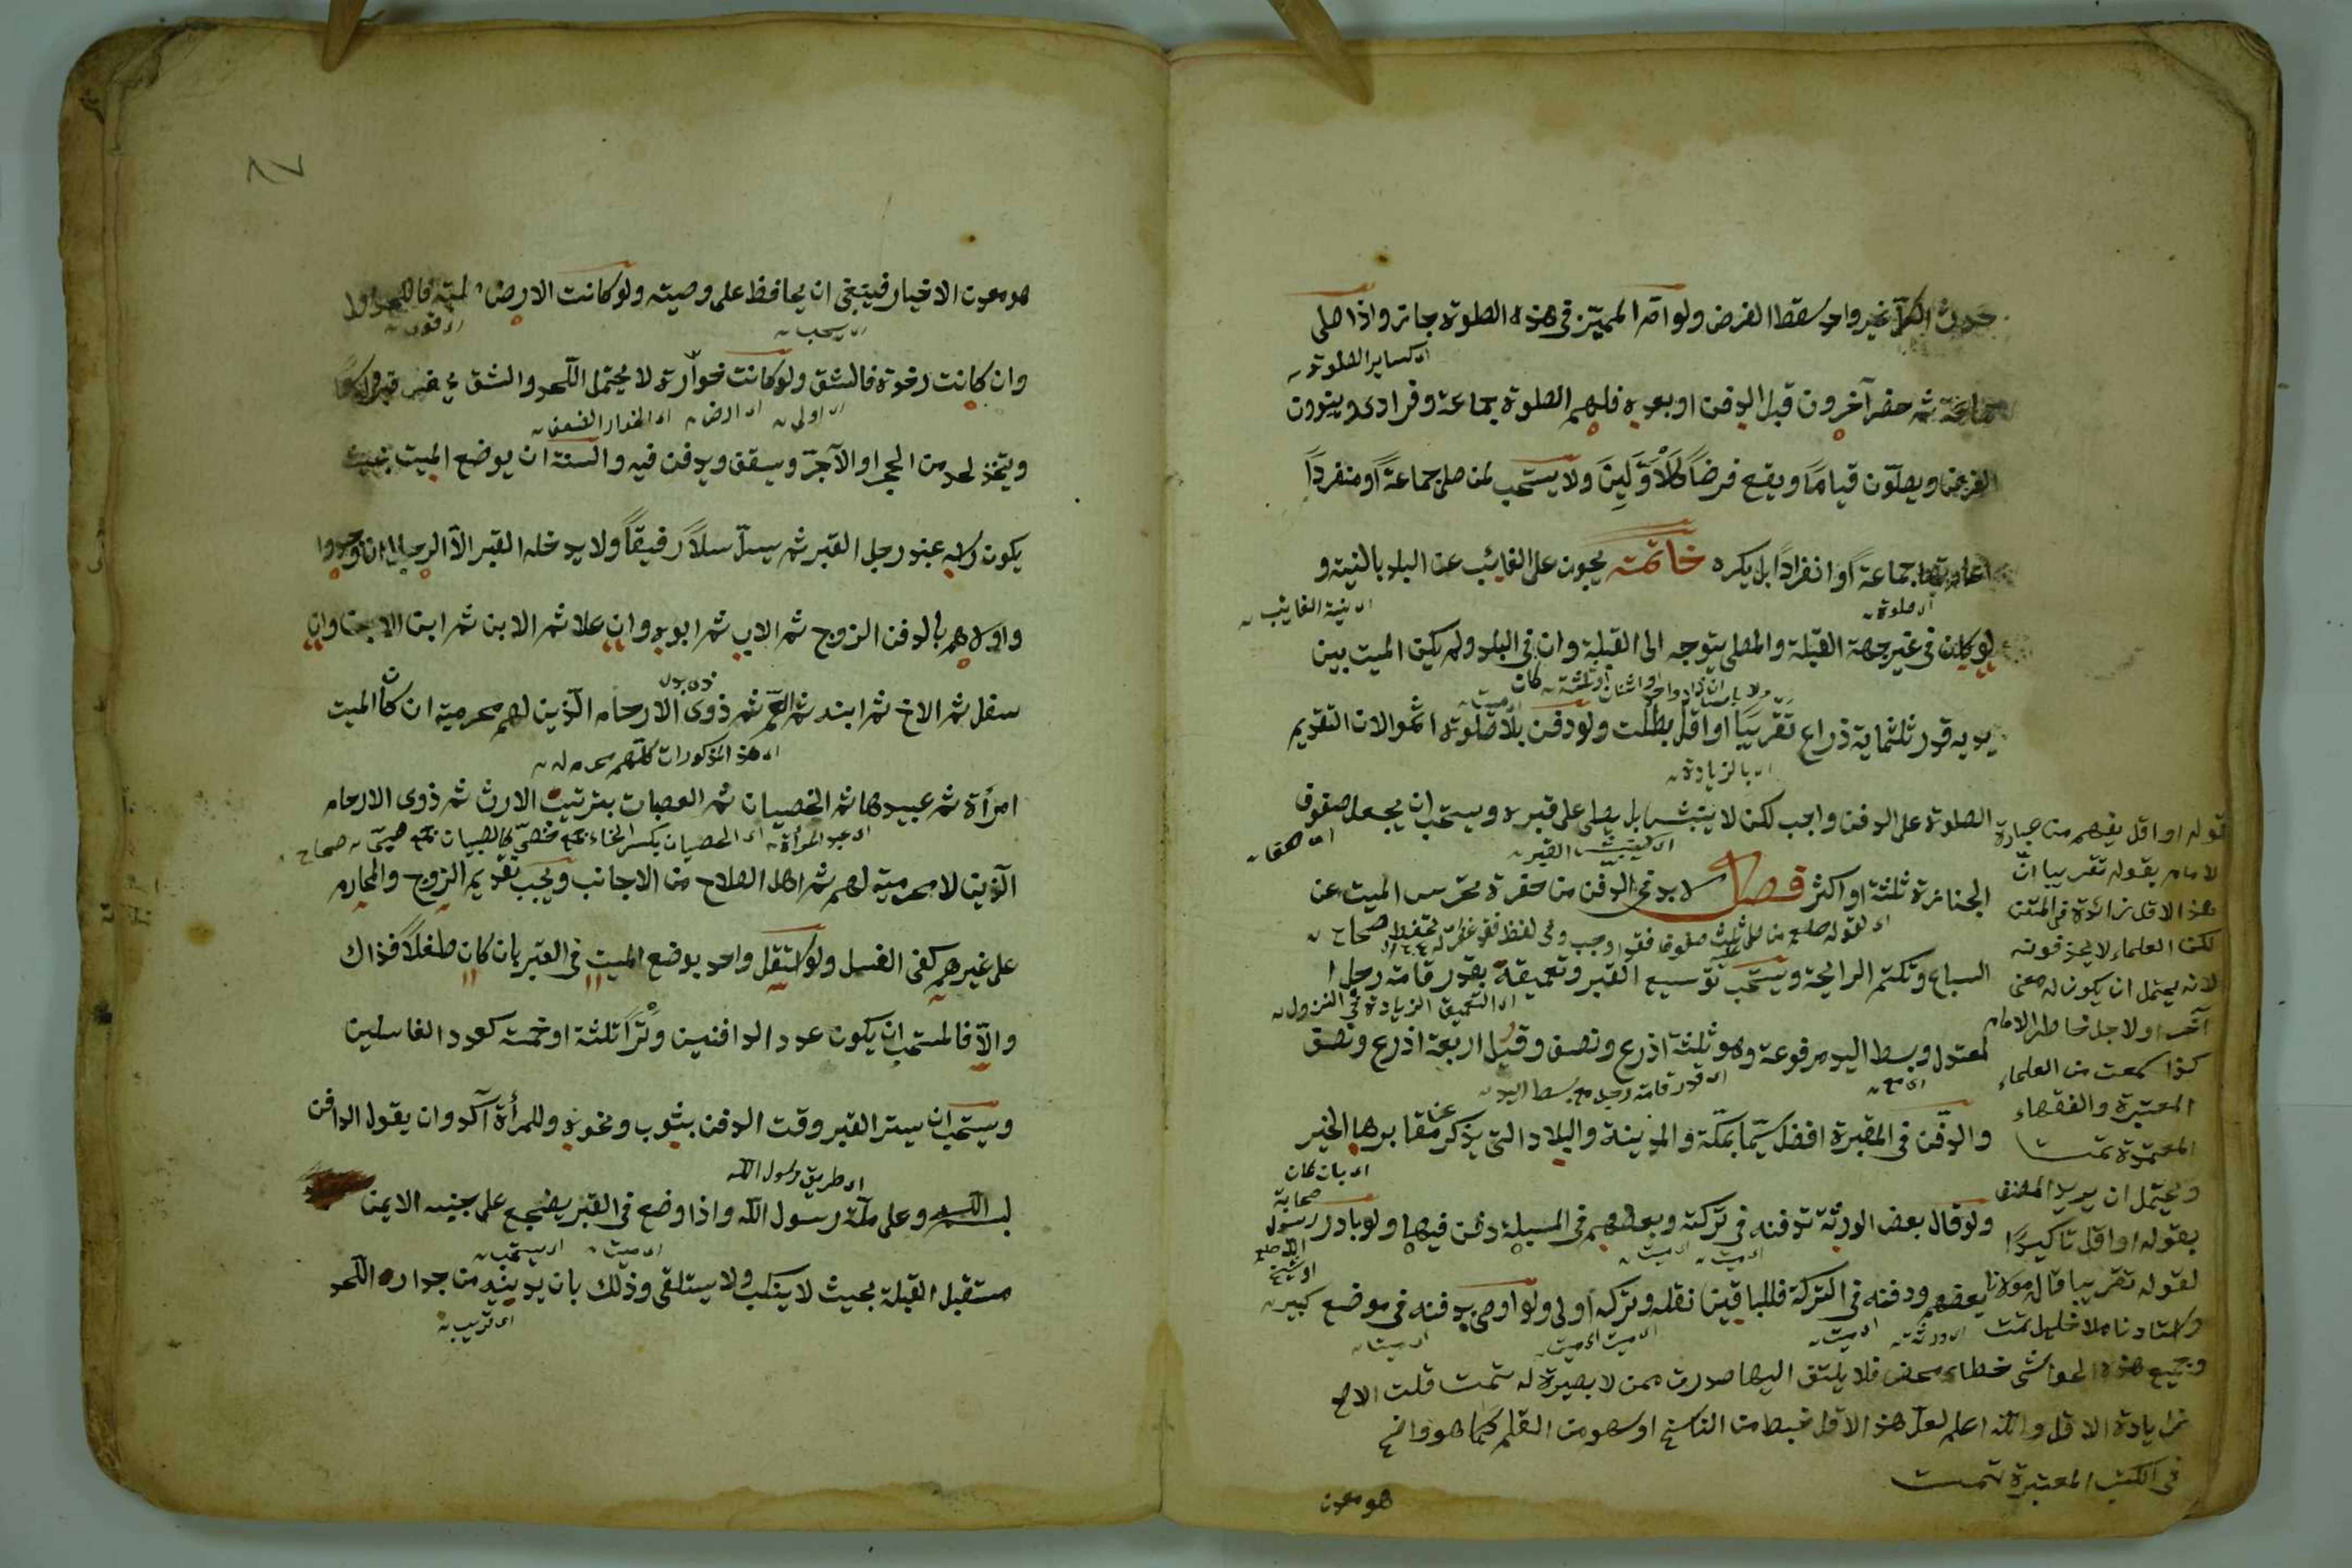 غير واحد سقط الفرض ولو امّ المميّز في هذه الصلوة جاز واذا صلى
اى كساير الصلوة
جماعة ثم حضر آخرون قبل الدفن او بعده فلهم الصلوة جماعة وفرادى وينوون
الفرض ويصلّون قياماً ويقع فرضاً كالاوّلين ولا يستحب لمن صلى جماعةً او منفرداً
اعادتها جماعةً او انفراداً بل يكره خاتمة يجوز على الغائب عن البلد بالنية و
اى صلوة
اى نية الغايب
لو كان في غير جهة القبلة والمصلى يتوجه الى القبلة وان كان في البلد ولم يكن الميت بين
يديه قدر ثلثماية ذراع تقريباً او اقل بطلت ولو دفن بلا صلوة اثموا لان التقديم
اى بالزيادة
الصلوة على الدفن واجب لكن لا ينبش بل يصلى على قبره ويستحب ان يجعل صفوف
الجنازة ثلثة او اكثر فصل لا بد في الدفن من حفرة تحرس الميت عن
السباع وتكتم الرايحة ويستحب توسيع القبر وتعميقه بقدر قامة رجل
اى التعميق الزيادة في النزول
معتدل وبسط اليد مرفوعة وهو ثلثة اذرع ونصف وقيل اربعة اذرع ونصف
اى قدر قامة رجل مع بسط اليد
والدفن في المقبرة افضل سيّما بمكّة والمدينة والبلاد التي يذكر عن مقابرها الخير
اى بان كان
صحابة
رسول
الله صلعم
ولو قال بعض الورثة تدفنه في تركته وبعضهم في المسبلة دفن فيها ولو بادر
بعضهم ودفنه في التركة فللباقين نقله وتركه اولى ولو اوصى بدفنه في موضع كبير
قوله او اقل يفهم من عبارة
الامام بقوله تقريبا انّ
هذا الاقل زائدة في المتن
لكن العلماء لا يحذفونه
لانه يحتمل ان يكون له معنى
آخر او لاجل خاطر الامام
كذا سمعت من العلماء
المعتبرة والفقهاء
المعتمدة تمت
ويحتمل ان يريد المصنف
بقوله او اقل تاكيدا
لقوله تقريبا قال مولانا
واستادنا ملا خليل تمت
وجميع هذه الحواشى خطاء محض فلا يلتفت اليها صدرت ممن لا بصيرة له تمت قلت الاصح
زيادة الاقل والله اعلم لعل هذا الاقل خبط من الناسخ او سهو من القلم كما هو واضح
في الكتب المعتبرة تمت
هو معدن
٨٧
هو معدن الاخيار فينبغى ان يحافظ على وصيته ولو كانت الارض
وان كانت رخوة فالشق ولو كانت خوّارة لا يحتمل اللّحد والشق
ويتخذ لحد من الحجر او الآجرّ ويسقف ويدفن فيه والسنة ان يوضع الميت بحيث
يكون راسه عند رجل القبر ثم يسلّ سلّاً رفيقاً ولا يدخله القبر الا الرجال ان وجدوا
واولاهم بالدفن الزوج ثم الاب ثم ابوه وان علا ثم الابن ثم ابن الابن وان
سفل ثم الاخ ثم ابنه ثم العمّ ثم ذوى الارحام الّذين لهم محرمية ان كان الميت
اى هذه المذكورات كلّهم محرم له
امرأة ثم عبيدها ثم الخصيان ثم العصبات بترتيب الارث ثم ذوى الارحام
اى عبد المرأة اى الخصيان بكسر الخاء جمع خصىّ كالصبيان جمع صبىّ صحاح
الّذين لا محرمية لهم ثم اهل الصلاح من الاجانب ويجب تقديم الزوج والمحارم
على غيرهم كفى الغسل ولو استقل واحد بوضع الميت في القبر بان كان طفلاً فذاك
والّا فالمستحب ان يكون عدد الدافنين وتراً ثلثة او خمسة كعدد الغاسلين
ويستحب ان يستر القبر وقت الدفن بثوب ونحوه وللمرأة آكد وان يقول الدافن
اى طريق رسول الله
بسم الله وعلى ملّة رسول الله واذا وضع في القبر يضجع على جنبه الايمن
اى ميت اى يستحب
مستقبل القبلة بحيث لا ينكب ولا يستلقى وذلك بان يدنيه من جدار اللّحد
اى قريب